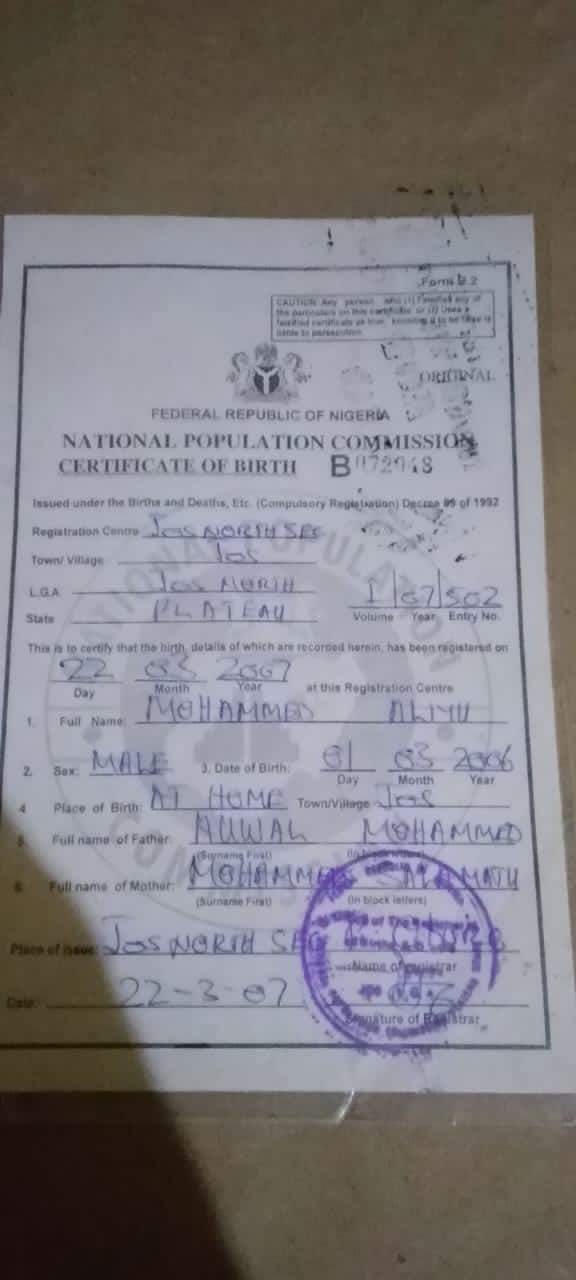 Form B.2
CAUTION: Any person who (1) Falsifies any of
the particulars on this certificate or (2) Uses a
falsified certificate as true, knowing it to be false is
liable to persecution
ORIGINAL
FEDERAL REPUBLIC OF NIGERIA
NATIONAL POPULATION COMMISSION
CERTIFICATE OF BIRTH B
Issued under the Births and Deaths, Etc. (Compulsory Registration) Decree of 1992
Registration Centre JOS NORTH SEC
Town/ Village JOS
L.G.A. JOS NORTH
State PLATEAU 1/07/502
Volume Year Entry No.
This is to certify that the birth, details of which are recorded herein, has been registered on
22 03 2007
Day Month Year at this Registration Centre
1. Full Name: MOHAMMED ALIYU
2. Sex: MALE 3. Date of Birth: 01 03 2006
Day Month Year
4. Place of Birth: AT HOME Town/Village JOS
5. Full name of Father: AUWAL MOHAMMED
(Surname First) (In block letters)
6. Full name of Mother: MOHAMMED SALAMATU
(Surname First) (In block letters)
Place of issue: JOS NORTH SEC
Name of registrar
Date: 22-3-07
Signature of Registrar